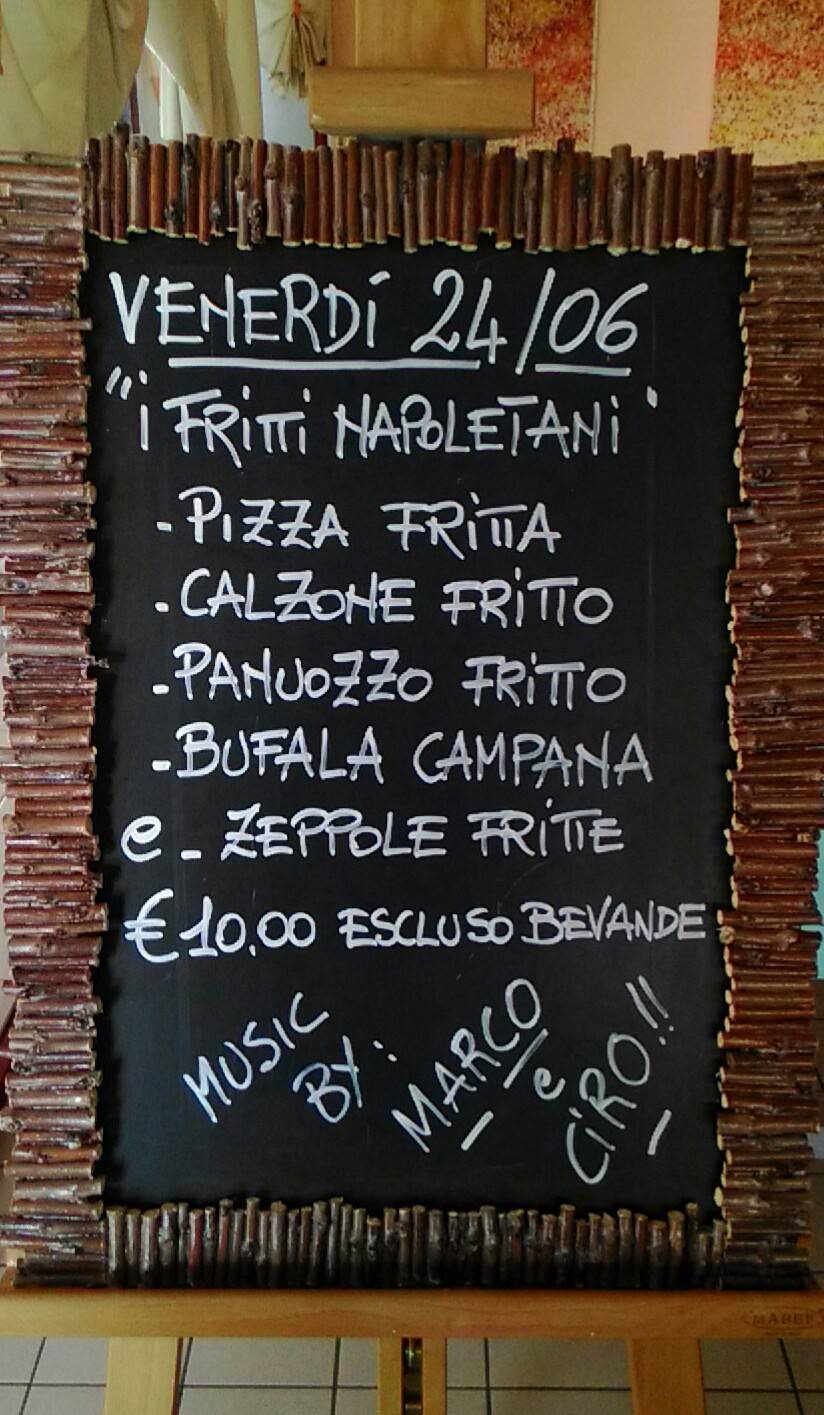 VENERDÍ 24/06
"i FRiTTi NAPOLETANi"
- PiZZA FRiTTA
- CALZONE FRiTTO
- PANUOZZO FRiTTO
- BUFALA CAMPANA
e - ZEPPOLE FRiTTE
€ 10,00 ESCLUSO BEVANDE
MUSIC BY: MARCO e CiRO!!
MABEF